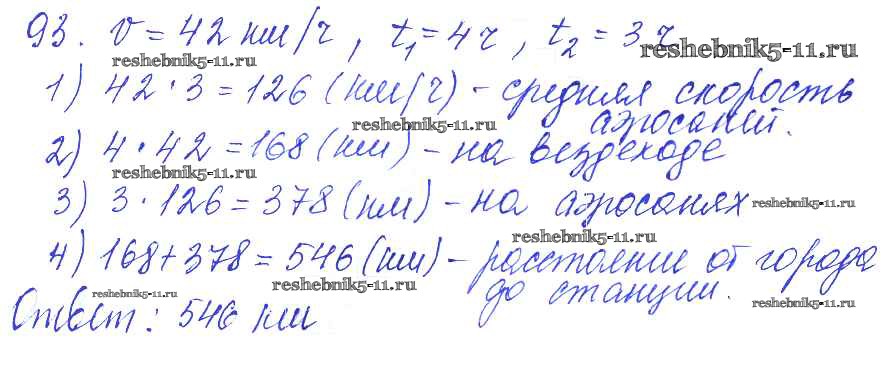 93. v = 42 км/ч, t₁ = 4 ч, t₂ = 3 ч
reshebnik5-11.ru reshebnik5-11.ru
1) 42 · 3 = 126 (км/ч) - средняя скорость
аэросаней.
reshebnik5-11.ru
2) 4 · 42 = 168 (км) - на вездеходе
reshebnik5-11.ru
3) 3 · 126 = 378 (км) - на аэросанях reshebnik5-11.ru
reshebnik5-11.ru
4) 168 + 378 = 546 (км) - расстояние от города
до станции.
reshebnik5-11.ru reshebnik5-11.ru reshebnik5-11.ru
Ответ: 546 км